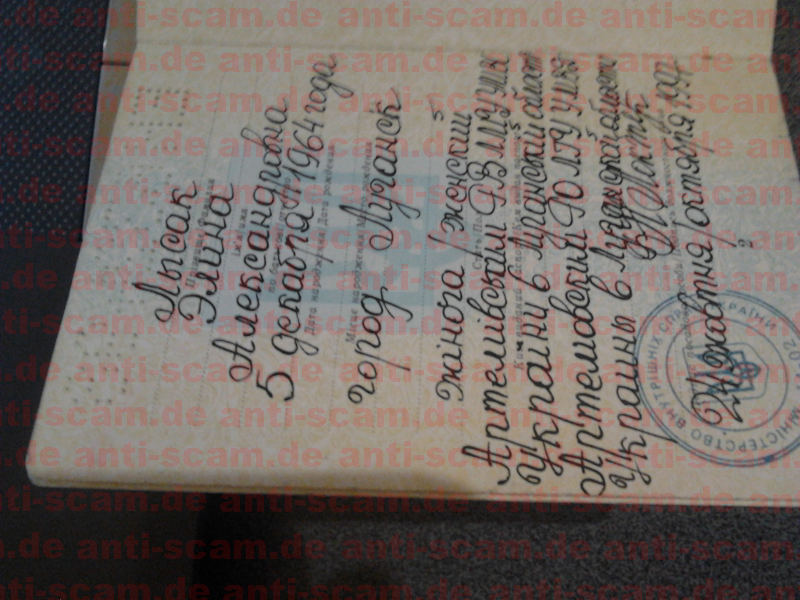 Лысак
Прізвище Фамилия
Элина
Ім'я Имя
Александровна
по батькові Отчество
5 декабря 1964 года
Дата народження Дата рождения
город Луганск
Місце народження Место рождения
жіноча женский
Стать Пол
Артемівським РВ ЛМУ УМВС
України в Луганській області
Артемовский РО ЛГУ УМВД
Украины в Луганской области
24 жовтня/октября 1997
МІНІСТЕРСТВО ВНУТРІШНІХ СПРАВ УКРАЇНИ
anti-scam.de anti-scam.de anti-scam.de